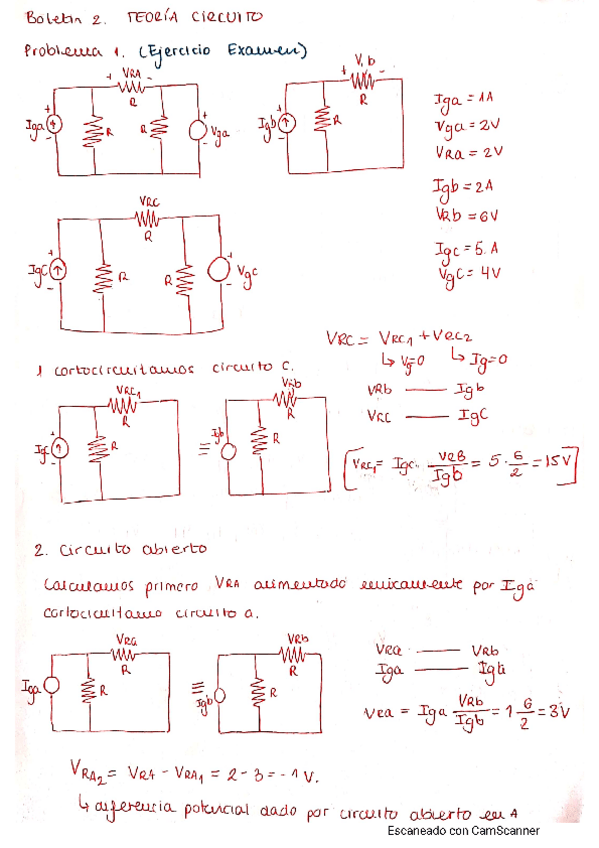 Boletin 2. TEORÍA CIRCUITO
Problema 1. (Ejercicio Examen)
+ VRA -
R
Iga
+
-
R
R
+
-
Vga
V,b
+ -
R
Igb
+
-
R
Iga = 1A
Vga = 2V
VRA = 2V
Igb = 2A
VRb = 6V
Igc = 5. A
VgC = 4V
VRC
R
IgC
+
-
R
R
+
-
Vgc
VRC = VRC1 + VRC2
↳ Vg=0 ↳ Ig=0
1 cortocircuitamos circuito c.
VRb — Igb
VRC — IgC
VRC1
R
+
-
R
≡
R
R
[VRC1 = Igc. VRB/Igb = 5 · 6/2 = 15V]
2. Circuito abierto
Calculamos primero VRA alimentado unicamente por Iga
cortocicuitamo circuito a.
VRa
R
Iga
R
≡
VRb
R
Igb
R
VRa — VRb
Iga — Igb
VRa = Iga VRb/Igb = 1 6/2 = 3V
VRA2 = VRA - VRA1 = 2 - 3 = -1 V.
↳ diferencia potencial dado por circuito abierto en A
Escaneado con CamScanner